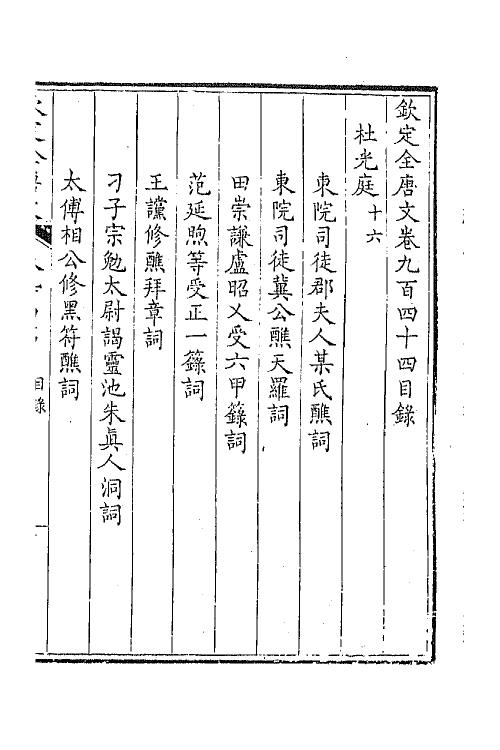 欽定全唐文卷九百四十四目錄
杜光庭十六
東院司徒郡夫人某氏醮詞
東院司徒冀公醮天羅詞
田崇謙盧昭乂受六甲籙詞
范延煦等受正一籙詞
王讜修醮拜章詞
刁子宗勉太尉謁靈池朱眞人洞詞
太傅相公修黑符醮詞
目錄
一